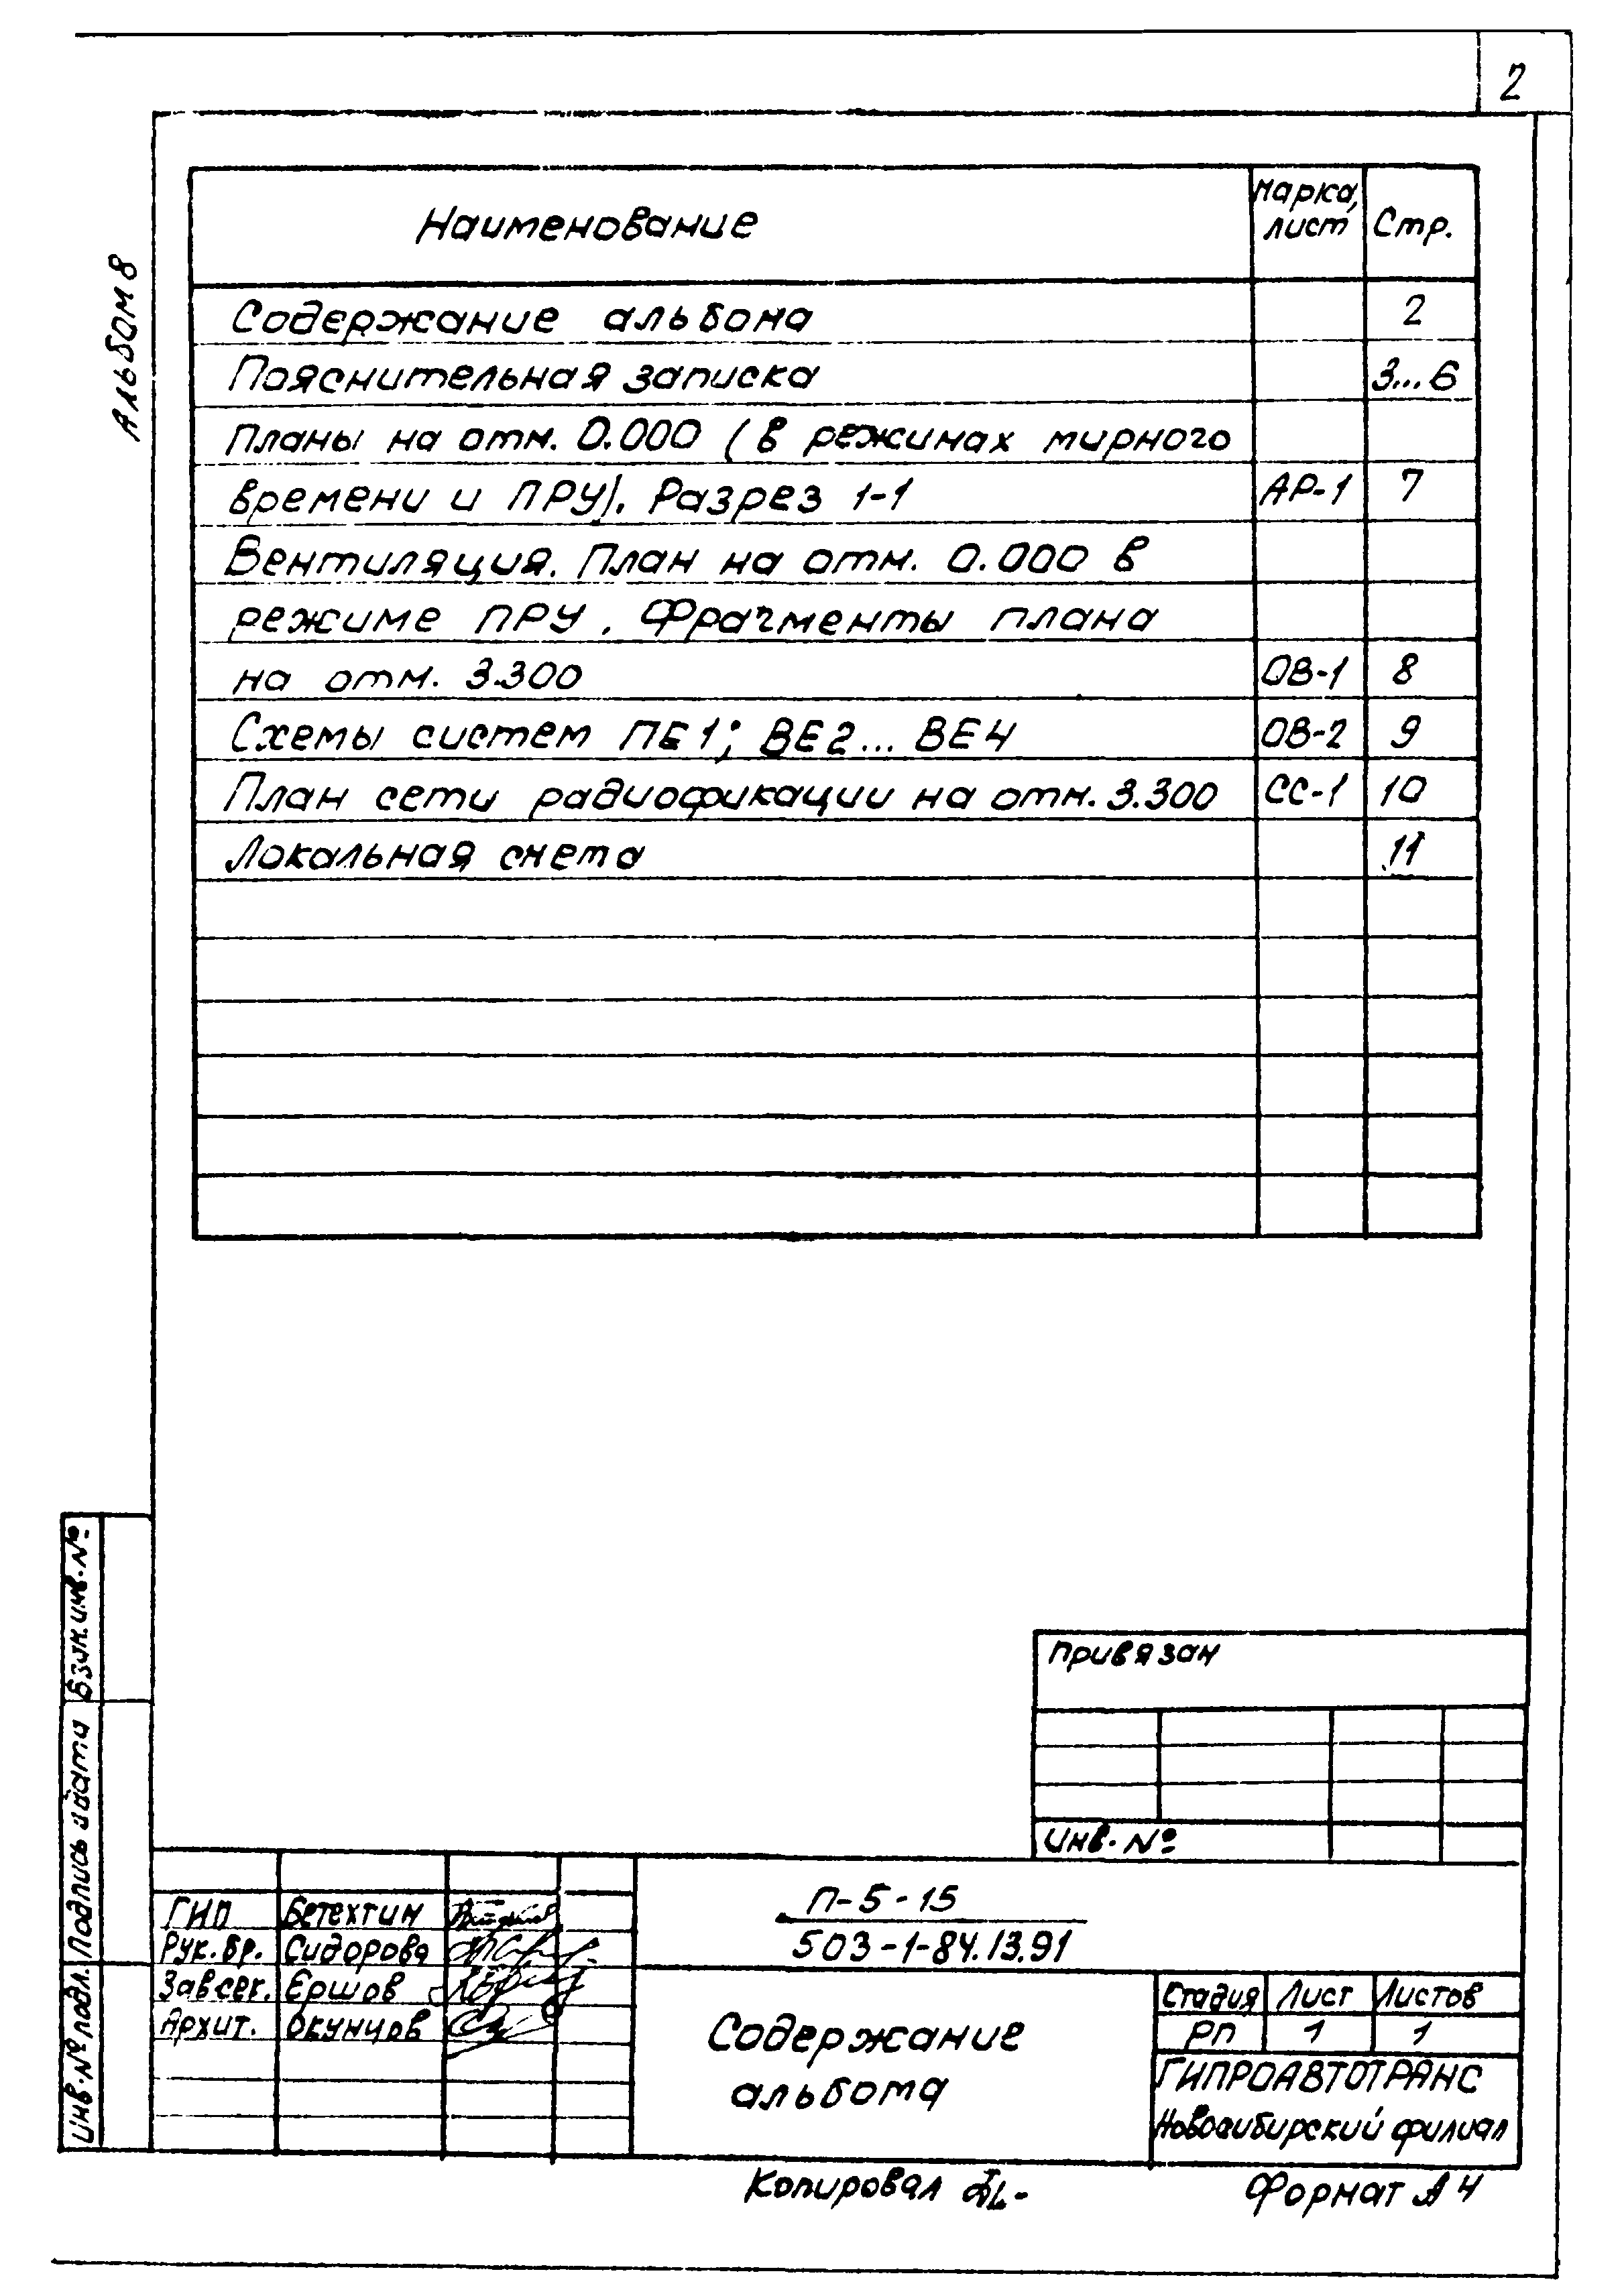 2
Альбом 8
Наименование
Марка, лист
Стр.
Содержание альбома 2
Пояснительная записка 3...6
Планы на отм. 0.000 (в режимах мирного
времени и ПРУ). Разрез 1-1 АР-1 7
Вентиляция. План на отм. 0.000 в
режиме ПРУ. Фрагменты плана
на отм. 3.300 ОВ-1 8
Схемы систем ПЕ1; ВЕ2... ВЕ4 ОВ-2 9
План сети радиофикации на отм. 3.300 СС-1 10
Локальная смета 11
Взам. инв. №
Подпись и дата
Инв. № подл.
Привязан
Инв. №
ГИП Бетехтин
Рук. бр. Сидорова
Зав сек. Ершов
Архит. Окунцов
П-5-15
503-1-84.13.91
Содержание
альбома
Стадия Лист Листов
РП 1 1
ГИПРОАВТОТРАНС
Новосибирский филиал
Копировал
Формат А4